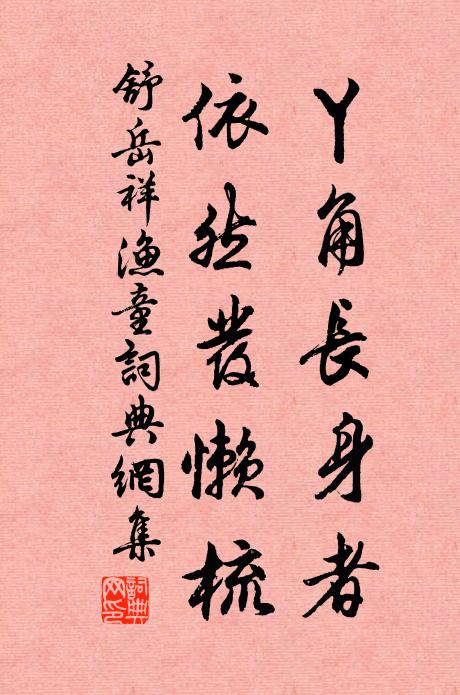 丫角長身者
依然發懶梳
舒岳祥漁童詞典網集
詞典網印